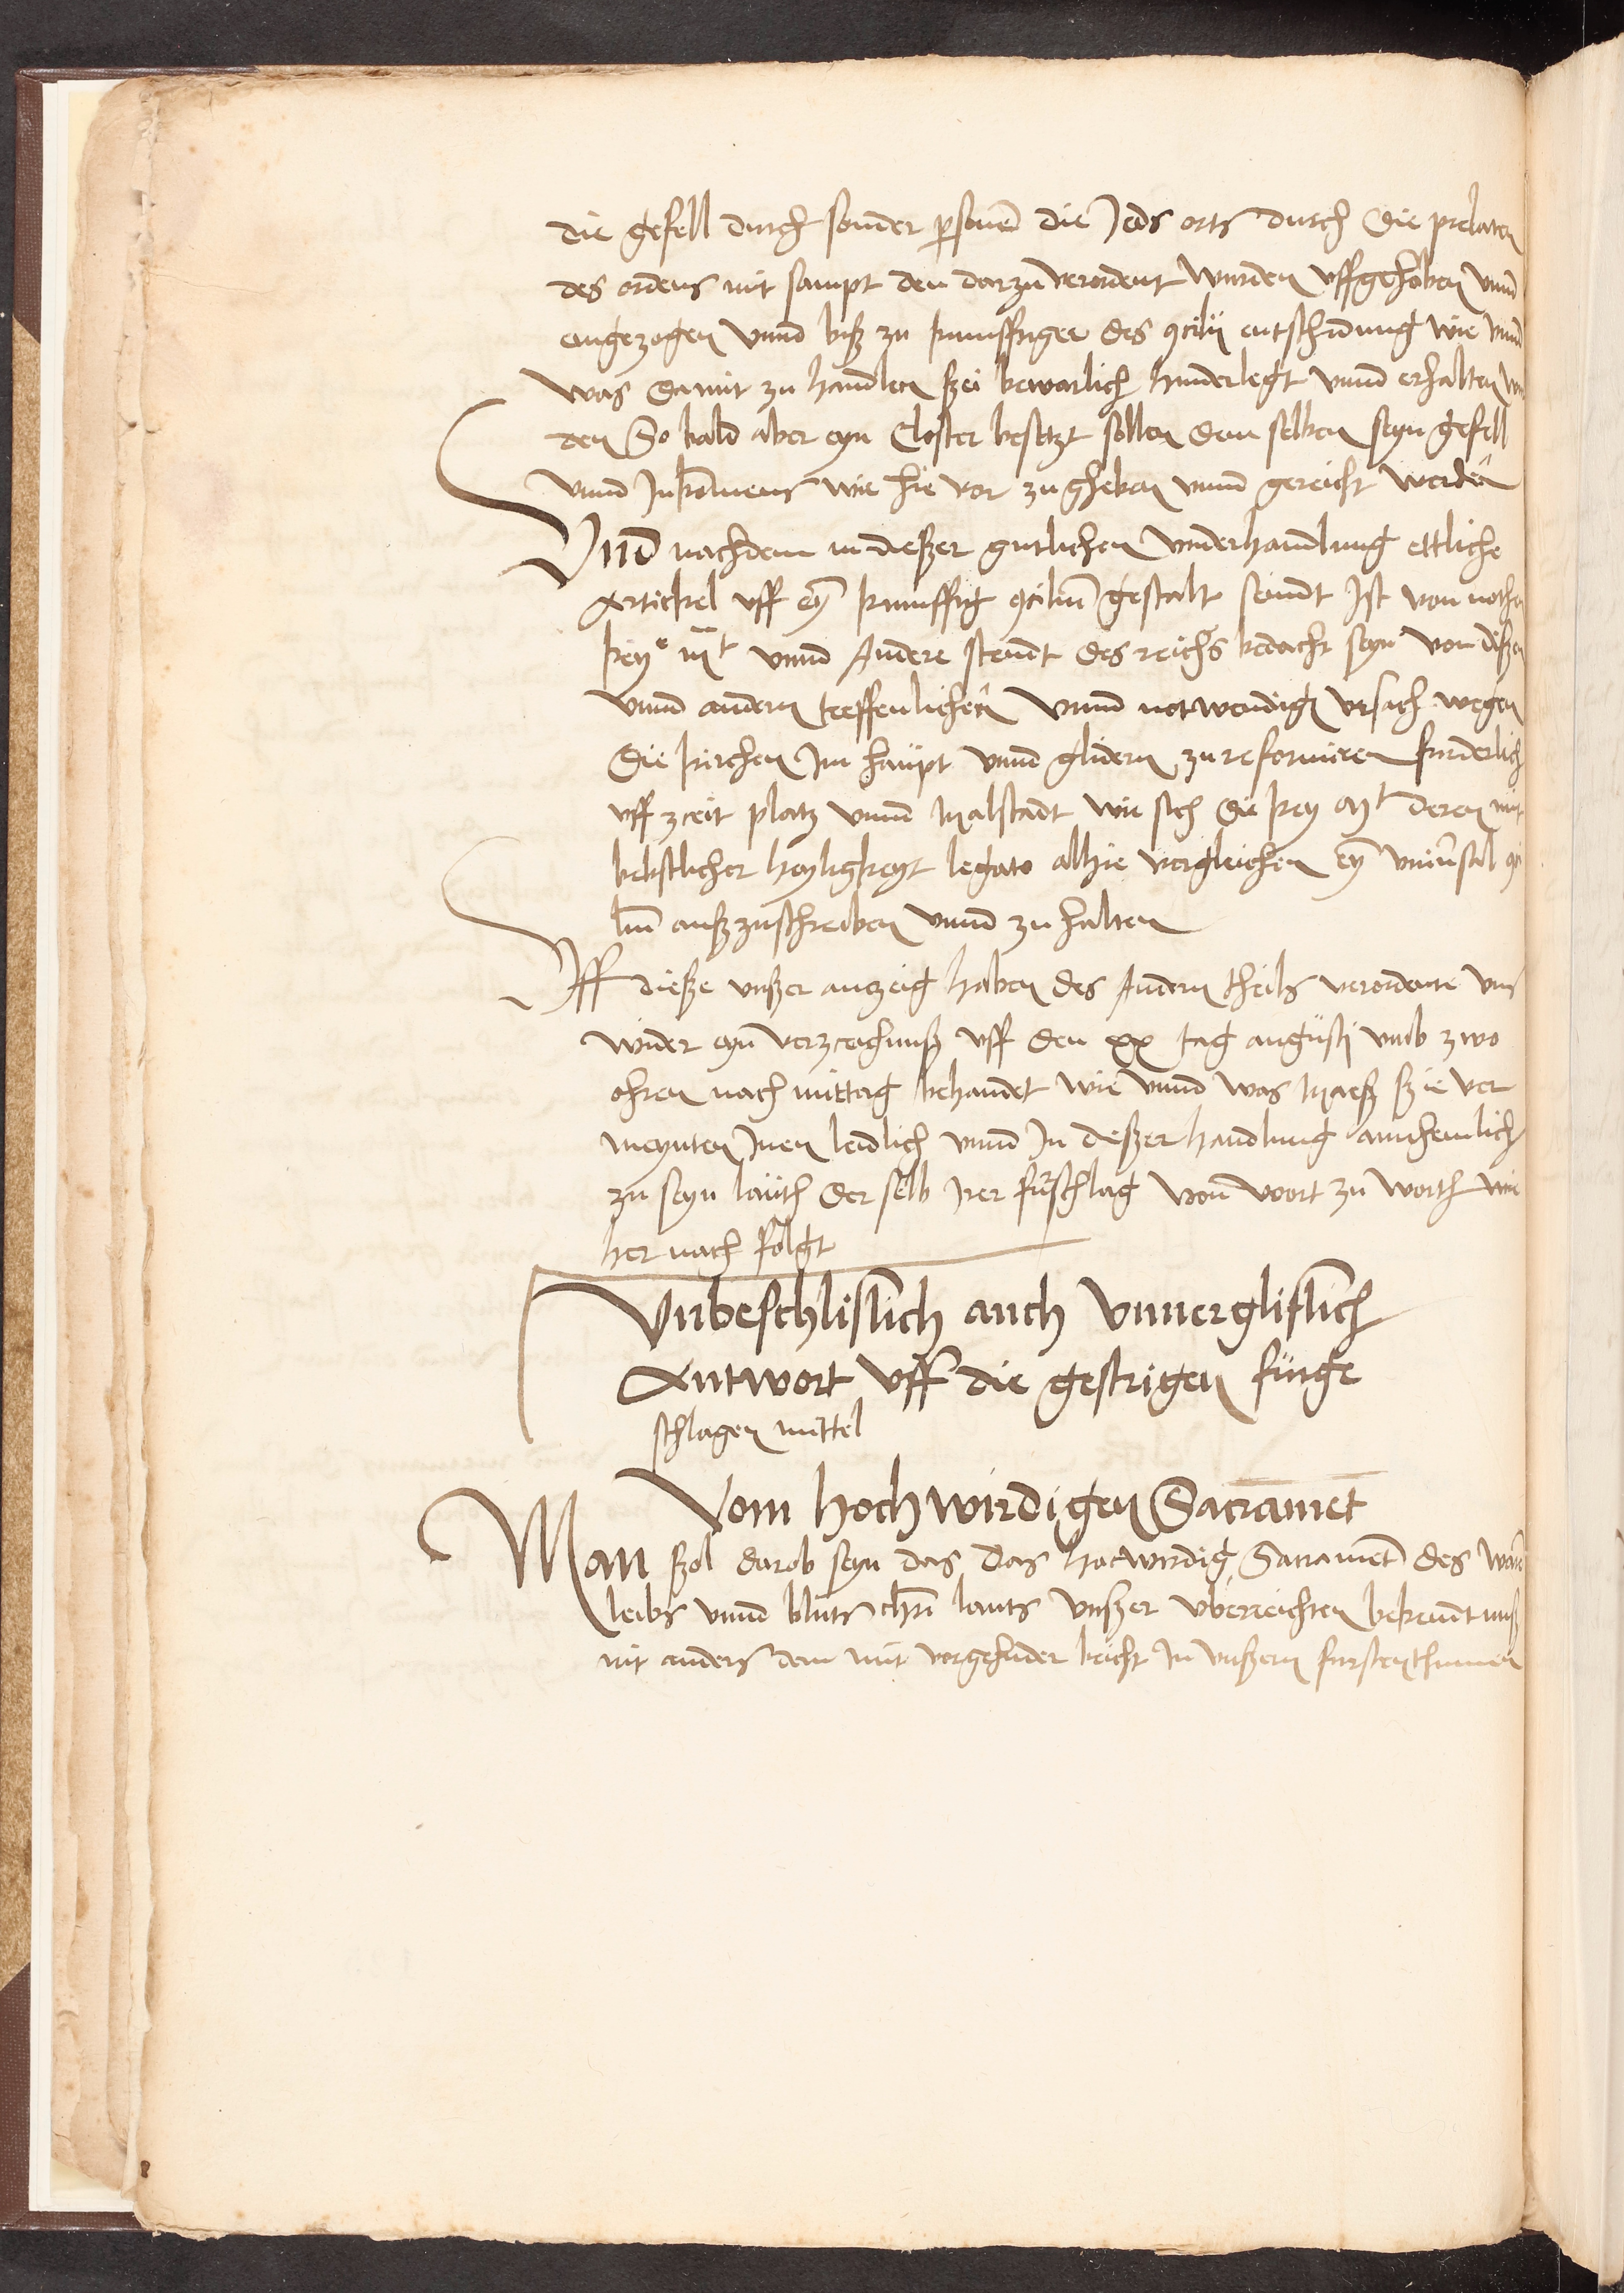 die gefell durch sonder psonen die Jeds orts durch die prelaten
des ordens mit sampt den darzu verordent wurden uffgehoben vnnd
eingezogen vnnd biß zu kunfftiger des 9cilii entschidung wie vnnd
was damit zu handlen szei bewarlich hinderlegt vnnd erhalten
den So bald aber eyn Closter besetzt sollen dem selben seyn gefell
vnnd Inkomens wie hie vor zugheben vnnd gereicht werden
Vnd nachdem in dießer gutlichen vnderhandlung ettliche
Artickel vff eyn kunfftig 9ciliu gestalt seindt Ist von nothen
key mt vnnd Andere stendt des reichs bedacht seyn von dißen
vnnd andern treffenlichen vnnd notwendigen vrsach wegen
die kirchen Im haupt vnnd glidern zu reformiren furderlich
vff zceit platz vnnd Malstadt wie sich die key Mt deren mit
bebstlicher heyligkeyt legato alhie vergleichen eyn vniuersal 9ci
liu außzuschreiben vnnd zu halten
Vff dieße vnßer anzeig haben des Andern theils verordente vns
wider eyn verzceichnuß vff den xx tag augusti vmb zwo
ohren nach mittag behandet wie vnnd was Maeß szie ver
meynten Inen leidlich vnnd In dießer handlung annhemlich
zu seyn lauth der selb Irer furschlag von wort zu worth wie
her nach folgt
Vnbeschlislich auch Vnuergliflich
Antwort vff die gestrigen fürge
schlagen mittel
Vom hochwirdigen Sacramet
Man szol darob seyn das das hocwirdig Sacrament des waren
leibs vnnd bluts chri lauts vnßer vberreichten bekentnuß
nit anders dem mit vorgehnder beicht In vnßern furstenthumen